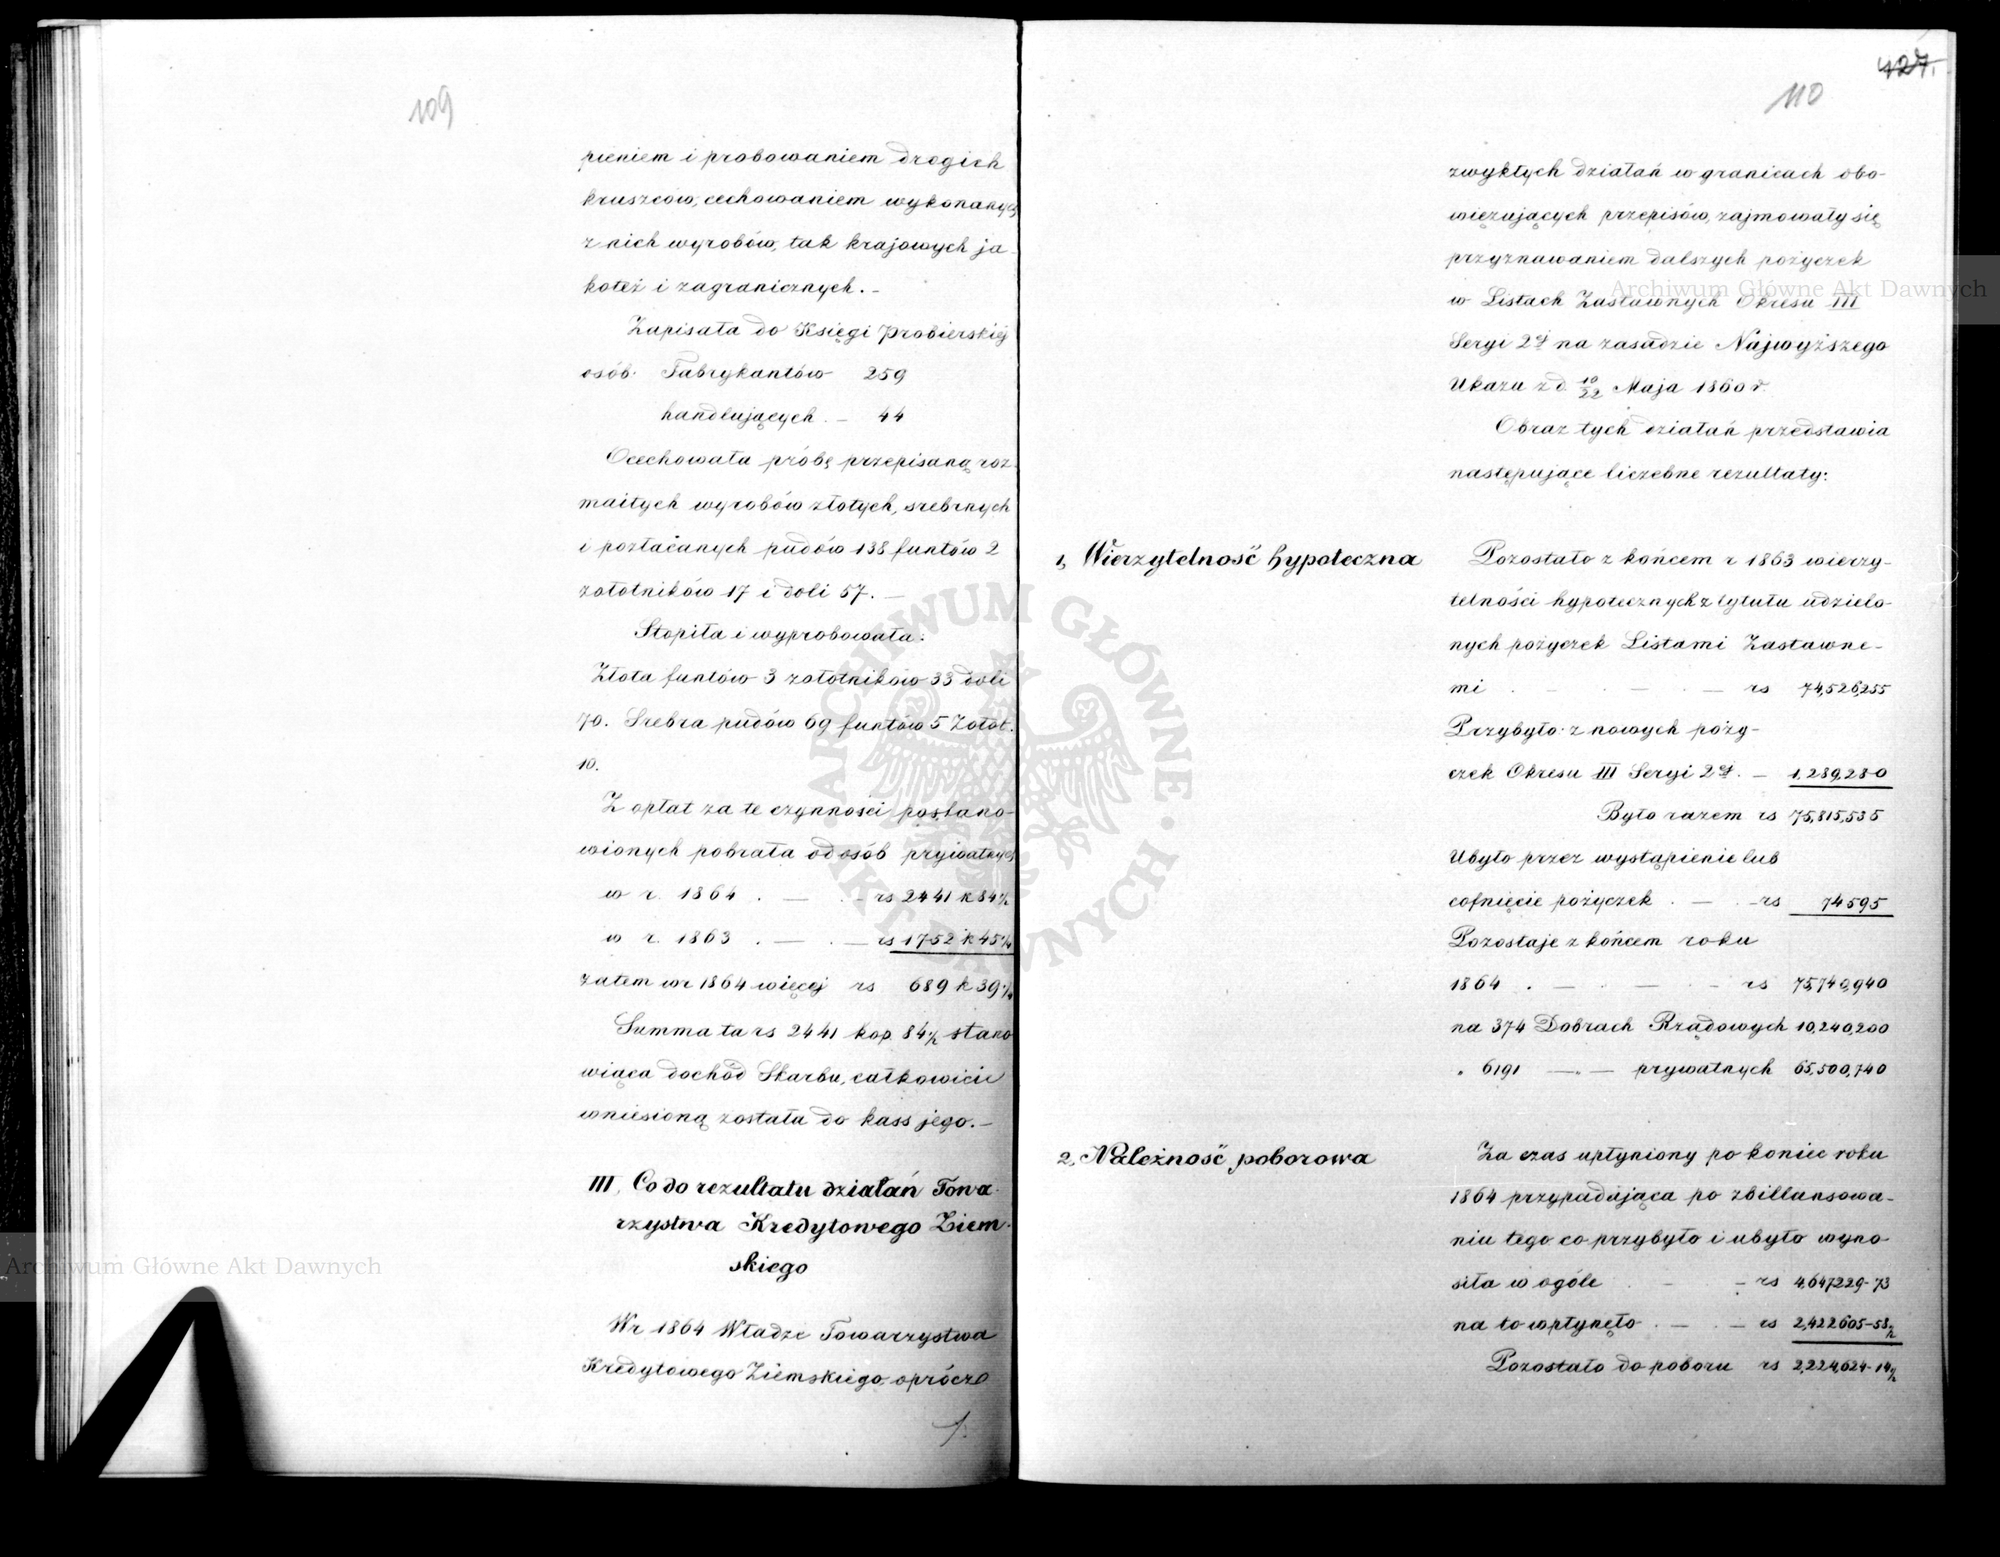 109
pieniem i probowaniem drogich
kruszców, cechowaniem wykonanych
z nich wyrobów, tak krajowych ja
koteż i zagranicznych. –
Zapisała do Księgi Probierskiéj
osób. Fabrykantów 259
handlujących. – 44
Ocechowała próbę przepisaną roz-
maitych wyrobów złotych, srebrnych
i pozłacanych pudów 138 funtów 2
zołotników 17 i doli 57. –
Stopiła i wyprobowała:
Złota funtów 3 zołotników 33 doli
70. Srebra pudów 69 funtów 5 Zołot.
10.
Z opłat za te czynności postano-
wionych pobrała od osób prywatnych
w r. 1864 . — . – rs 2441 k 84½
w r. 1863 . — . — rs 1752 k 45¼
zatem w r 1864 więcej rs 689 k 39¼
Summa ta rs 2441 kop. 84½ stano
wiąca dochód Skarbu, całkowicie
wniesioną została do kass jego. –
III, Co do rezultatu działań Towa-
rzystwa Kredytowego Ziem-
skiego
W r 1864 Władze Towarzystwa
Kredytowego Ziemskiego, oprócz
427.
110
zwykłych działań w granicach obo-
wiązujących przepisów, zajmowały się
przyznawaniem dalszych pożyczek
w Listach Zastawnych Okresu III
Seryi 2éj na zasadzie Najwyższego
Ukazu z d. 10/22 Maja 1860 r.
Obraz tych działań przedstawia
następujące liczebne rezultaty:
1, Wierzytelność hypoteczna
Pozostało z końcem r 1863 wierzy-
telności hypotecznych z tytułu udzielo-
nych pożyczek Listami Zastawne-
mi . – . — . — rs 74,526,255
Przybyło z nowych poży-
czek Okresu III Seryi 2éj. – 1,289,280
Było razem rs 75,815,535
Ubyło przez wystąpienie lub
cofnięcie pożyczek . — . – rs 74595
Pozostaje z końcem roku
1864 . — . — . – rs 75,740,940
na 374 Dobrach Rządowych 10,240,200
" 6191 —"— prywatnych 65,500,740
2, Należność poborowa
Za czas upłyniony po koniec roku
1864 przypadająca po zbillansowa-
niu tego co przybyło i ubyło wyno-
siła w ogóle . – . – rs 4,647229-73
na to wpłynęło . — . — rs 2,422605-58½
Pozostało do poboru rs 2,224,624-14½
ARCHIWUM GŁÓWNE AKT DAWNYCH
Archiwum Główne Akt Dawnych
Archiwum Główne Akt Dawnych